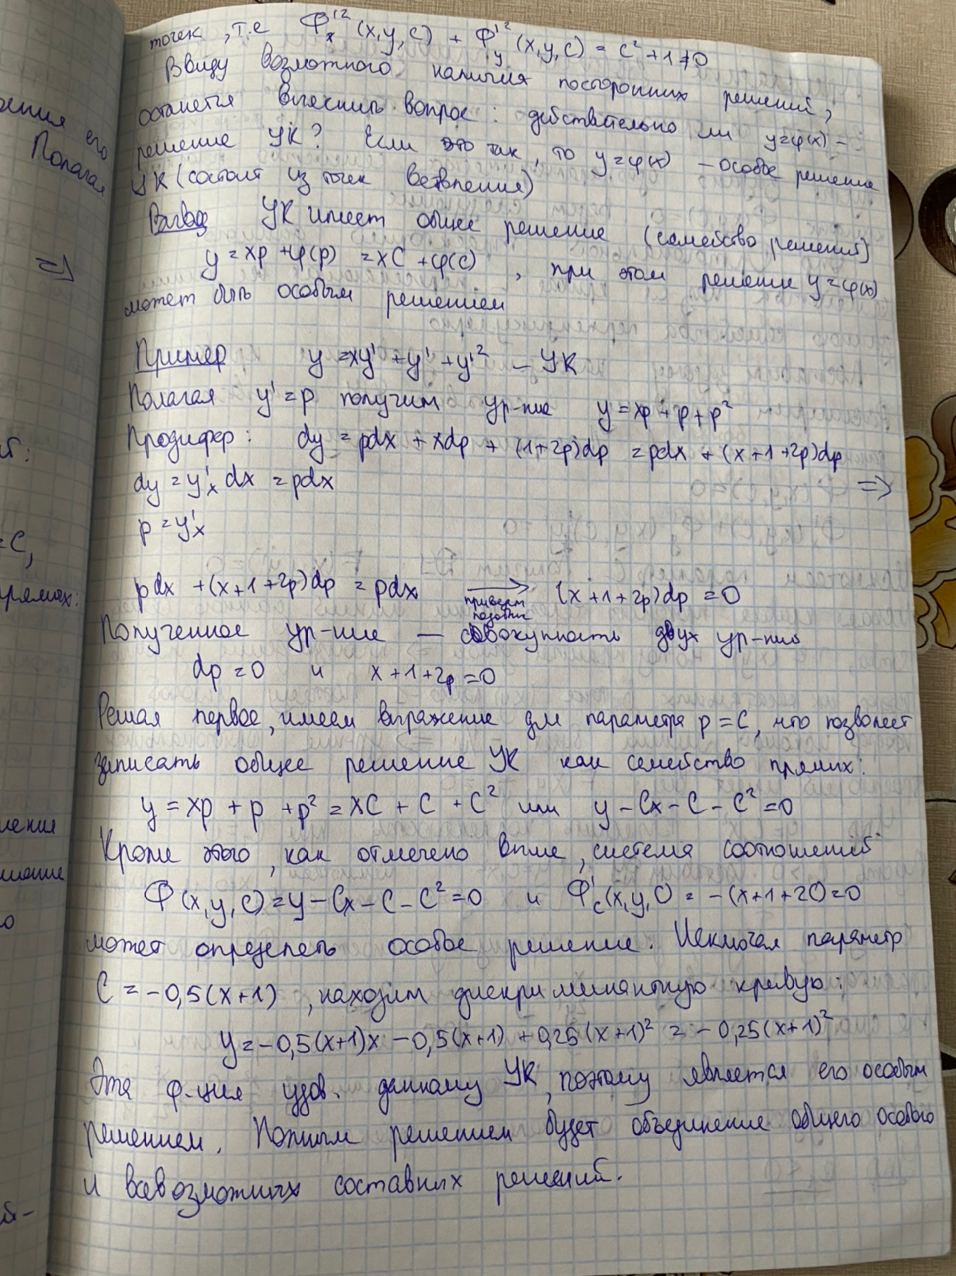 точек, т.е Φ'ₓ²(x,y,C) + Φ'ᵧ²(x,y,C) = C²+1≠0
Ввиду возможного наличия посторонних решений,
остается выяснить вопрос: действительно ли y=φ(x) –
решение УК? Если это так, то y=φ(x) – особое решение
УК (состоит из точек ветвления)
Вывод УК имеет общее решение (семейство решений)
y = xp + φ(p) = xC + φ(C), при этом решение y=φ(x)
может быть особым решением
Пример y = xy' + y' + y'² – УК
Полагая y'=p получим ур-ние y = xp + p + p²
Продифер: dy = pdx + xdp + (1+2p)dp = pdx + (x+1+2p)dp
dy = y'ₓdx = pdx ⇒
p = y'ₓ
pdx + (x+1+2p)dp = pdx → (x+1+2p)dp = 0
Полученное ур-ние — совокупность двух ур-ний
dp = 0 и x+1+2p = 0
Решая первое, имеем выражение для параметра p=C, что позволяет
записать общее решение УК как семейство прямых:
y = xp + p + p² = xC + C + C² или y – Cx – C – C² = 0
Кроме этого, как отмечено выше, система соотношений
Φ(x,y,C) = y – Cx – C – C² = 0 и Φ'c(x,y,C) = –(x+1+2C) = 0
может определять особое решение. Исключая параметр
C = –0,5(x+1), находим дискриминантную кривую:
y = –0,5(x+1)x – 0,5(x+1) + 0,25(x+1)² = –0,25(x+1)²
Эта ф-ция удов. данному УК, поэтому является его особым
решением. Полным решением будет объединение общего особого
и всевозможных составных решений.